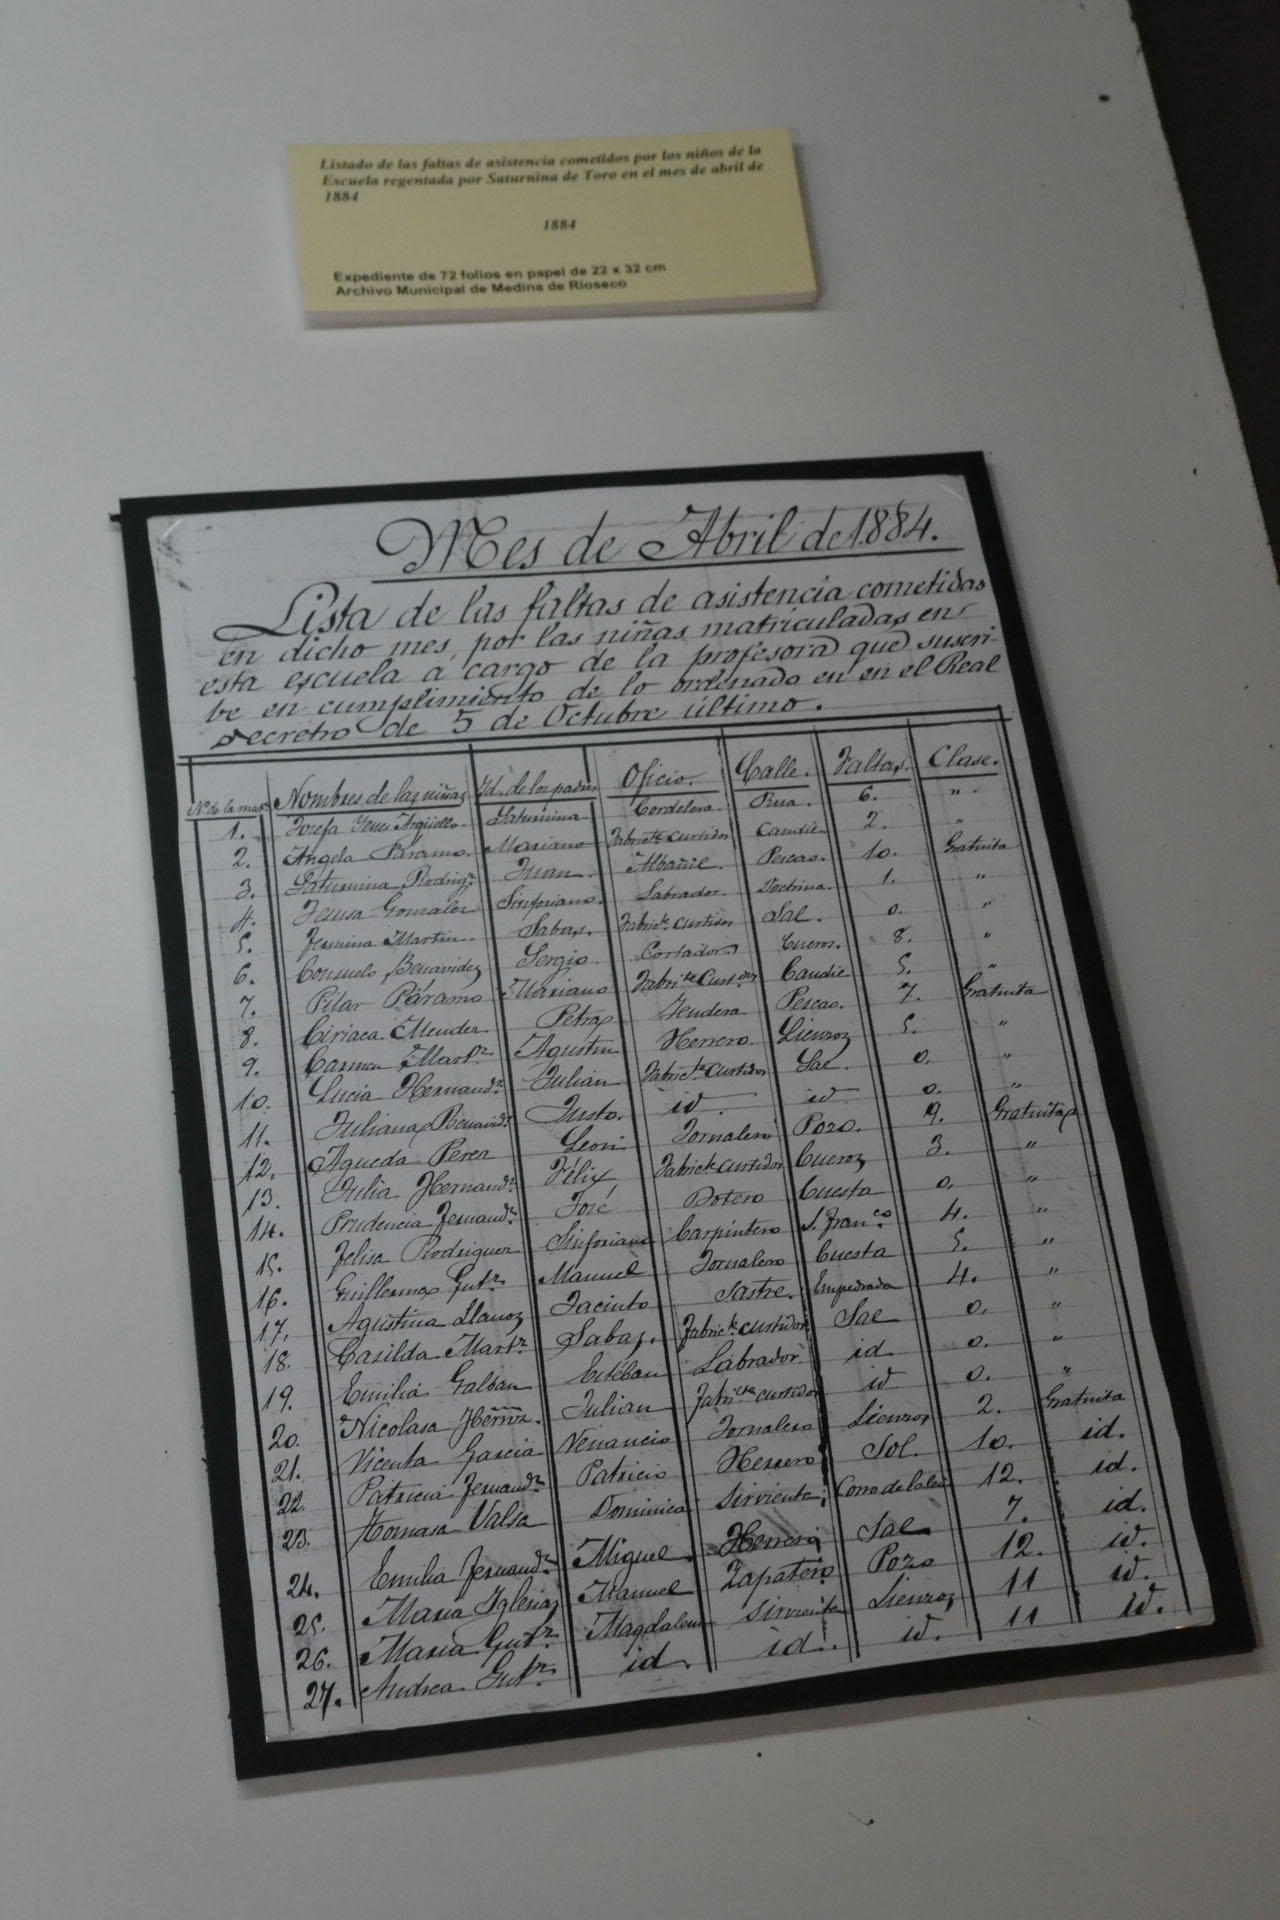 Listado de las faltas de asistencia cometidas por los niños de la
Escuela regentada por Saturnina de Toro en el mes de abril de
1884
1884
Expediente de 72 folios en papel de 22 x 32 cm
Archivo Municipal de Medina de Rioseco
Mes de Abril de 1.884.
Lista de las faltas de asistencia cometidas
en dicho mes, por las niñas matriculadas en
esta escuela á cargo de la profesora que suscri-
be en cumplimiento de lo ordenado en en el Real
decreto de 5 de Octubre último.
Nº de la mat. Nombres de las niñas Id. de los padres Oficio. Calle. Faltas. Clase.
1. Josefa Argüello. Saturnina Cordelera. Rua. 6. "
2. Angela Páramo. Mariano Fabrite curtidos Candil 2. "
3. Saturnina Rodrigz Juan. Albañil. Pescao. 10. Gratuita
4. Jesusa Gonzalez Sinforiano. Labrador Doctrina. 1. "
5. Fermina Martin. Sabas. Fabrite curtidos Sal. 0. "
6. Consuelo Benavides Sergio. Cortador Cueros. 8. "
7. Pilar Páramo Mariano Fabrite Curtdos Candil 5. "
8. Ciriaca Mendez Petra Tendera Pescao. 7. Gratuita
9. Carmen Martz Agustin Herrero. Lienzos 5. "
10. Lucia Hernandz Julian Fabrite curtidos Sal. 0. "
11. Juliana Benavids Justo. id id 0. "
12. Agueda Perez Leon Jornalero Pozo. 9. Gratuita
13. Julia Hernandz Félix Fabrite curtidos Cueros 3. "
14. Prudencia Fernandz José Botero Cuesta 0. "
15. Felisa Rodriguez Sinforiano Carpintero S. Franco 4. "
16. Guillerma Gutz Manuel Jornalero Cuesta 5. "
17. Agustina Llanos Jacinto Sastre. Empedrada 4. "
18. Casilda Martz Sabas. Fabrite curtidos Sal 0. "
19. Emilia Galban Estéban Labrador id. 0. "
20. Nicolasa Julian Fabrite curtidos id 0. "
21. Vicenta Garcia Venancio Jornalero Lienzos 2. Gratuita
22. Patricia Fernandz Patricio Herrero Sol. 10. id.
23. Tomasa Valsa Dominica Sirvienta; Corro de 12. id.
24. Emilia Fernandz Miguel Herrero Sal 7. id.
25. Maria Iglesias Manuel Zapatero Pozo 12. id.
26. Maria Gutz Magdalena Sirvienta Lienzos 11 id.
27. Andrea Gutz id. id. id. 11 id.